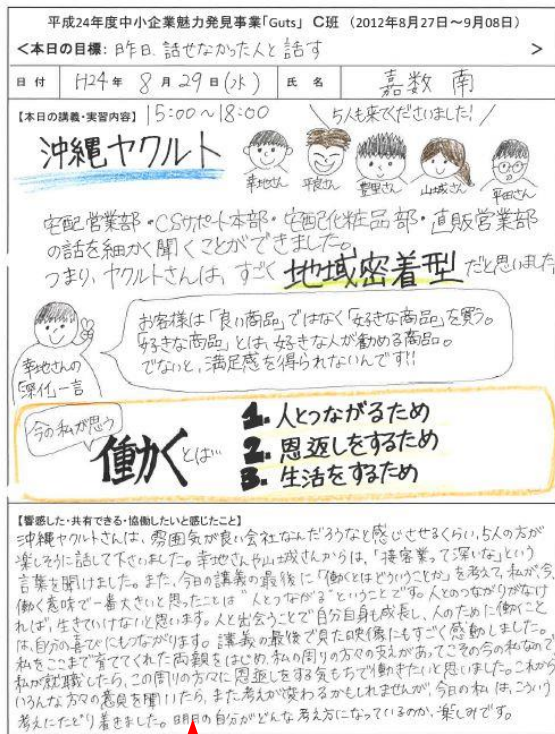 平成24年度中小企業魅力発見事業「Guts」 C班 (2012年8月27日~9月08日)
<本日の目標: 昨日、話せなかった人と話す >
日付 H24年 8月29日(水) 氏名 嘉数 南
【本日の講義・実習内容】 15:00~18:00 \5人も来てくださいました!/
沖縄ヤクルト
幸地さん 平良さん 豊里さん 山城さん 平田さん
宅配営業部・CSサポート本部・宅配化粧品部・直販営業部
の話を細かく聞くことができました。
つまり、ヤクルトさんは、すごく地域密着型だと思いました
お客様は「良い商品」ではなく「好きな商品」を買う。
「好きな商品」とは、好きな人が勧める商品。
でないと、満足感を得られないんです!!
幸地さんの
「深イイ一言」
今の私が思う
働くとは…
1. 人とつながるため
2. 恩返しをするため
3. 生活をするため
【響感した・共有できる・協働したいと感じたこと】
沖縄ヤクルトさんは、雰囲気が良い会社なんだろうなと感じさせるくらい、5人の方が
楽しそうに話して下さいました。幸地さんや山城さんからは、「接客業って深いな」という
言葉を聞けました。また、今日の講義の最後に「働くとはどういうことか」を考えて、私が、今
働く意味で一番大きいと思ったことは"人とつながる"ということです。人とのつながりがなけ
れば、生きていけないと思います。人と出会うことで自分自身も成長し、人のために働くこと
は、自分の喜びにもつながります。講義の最後で見た映像にもすごく感動しました。
私をここまで育ててくれた両親をはじめ、私の周りの方々の支えがあってこその今の私なので、
私が就職したら、この周りの方々に恩返しをする気もちで働きたいと思いました。これから
いろんな方々の意見を聞いたら、また考えが変わるかもしれませんが、今日の私は、こういう
考えにたどり着きました。明日の自分がどんな考え方になっているのか、楽しみです。